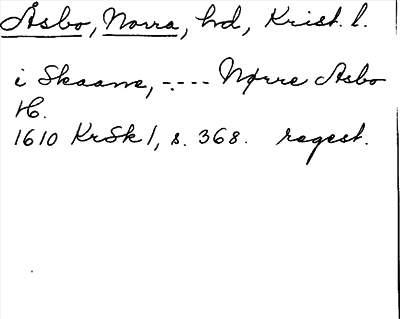 Åsbo, Norra, hd, Krist. l.
i Skaane, -.--- Nørre Asbo
H.
1610 KrSk 1, s. 368. regest.